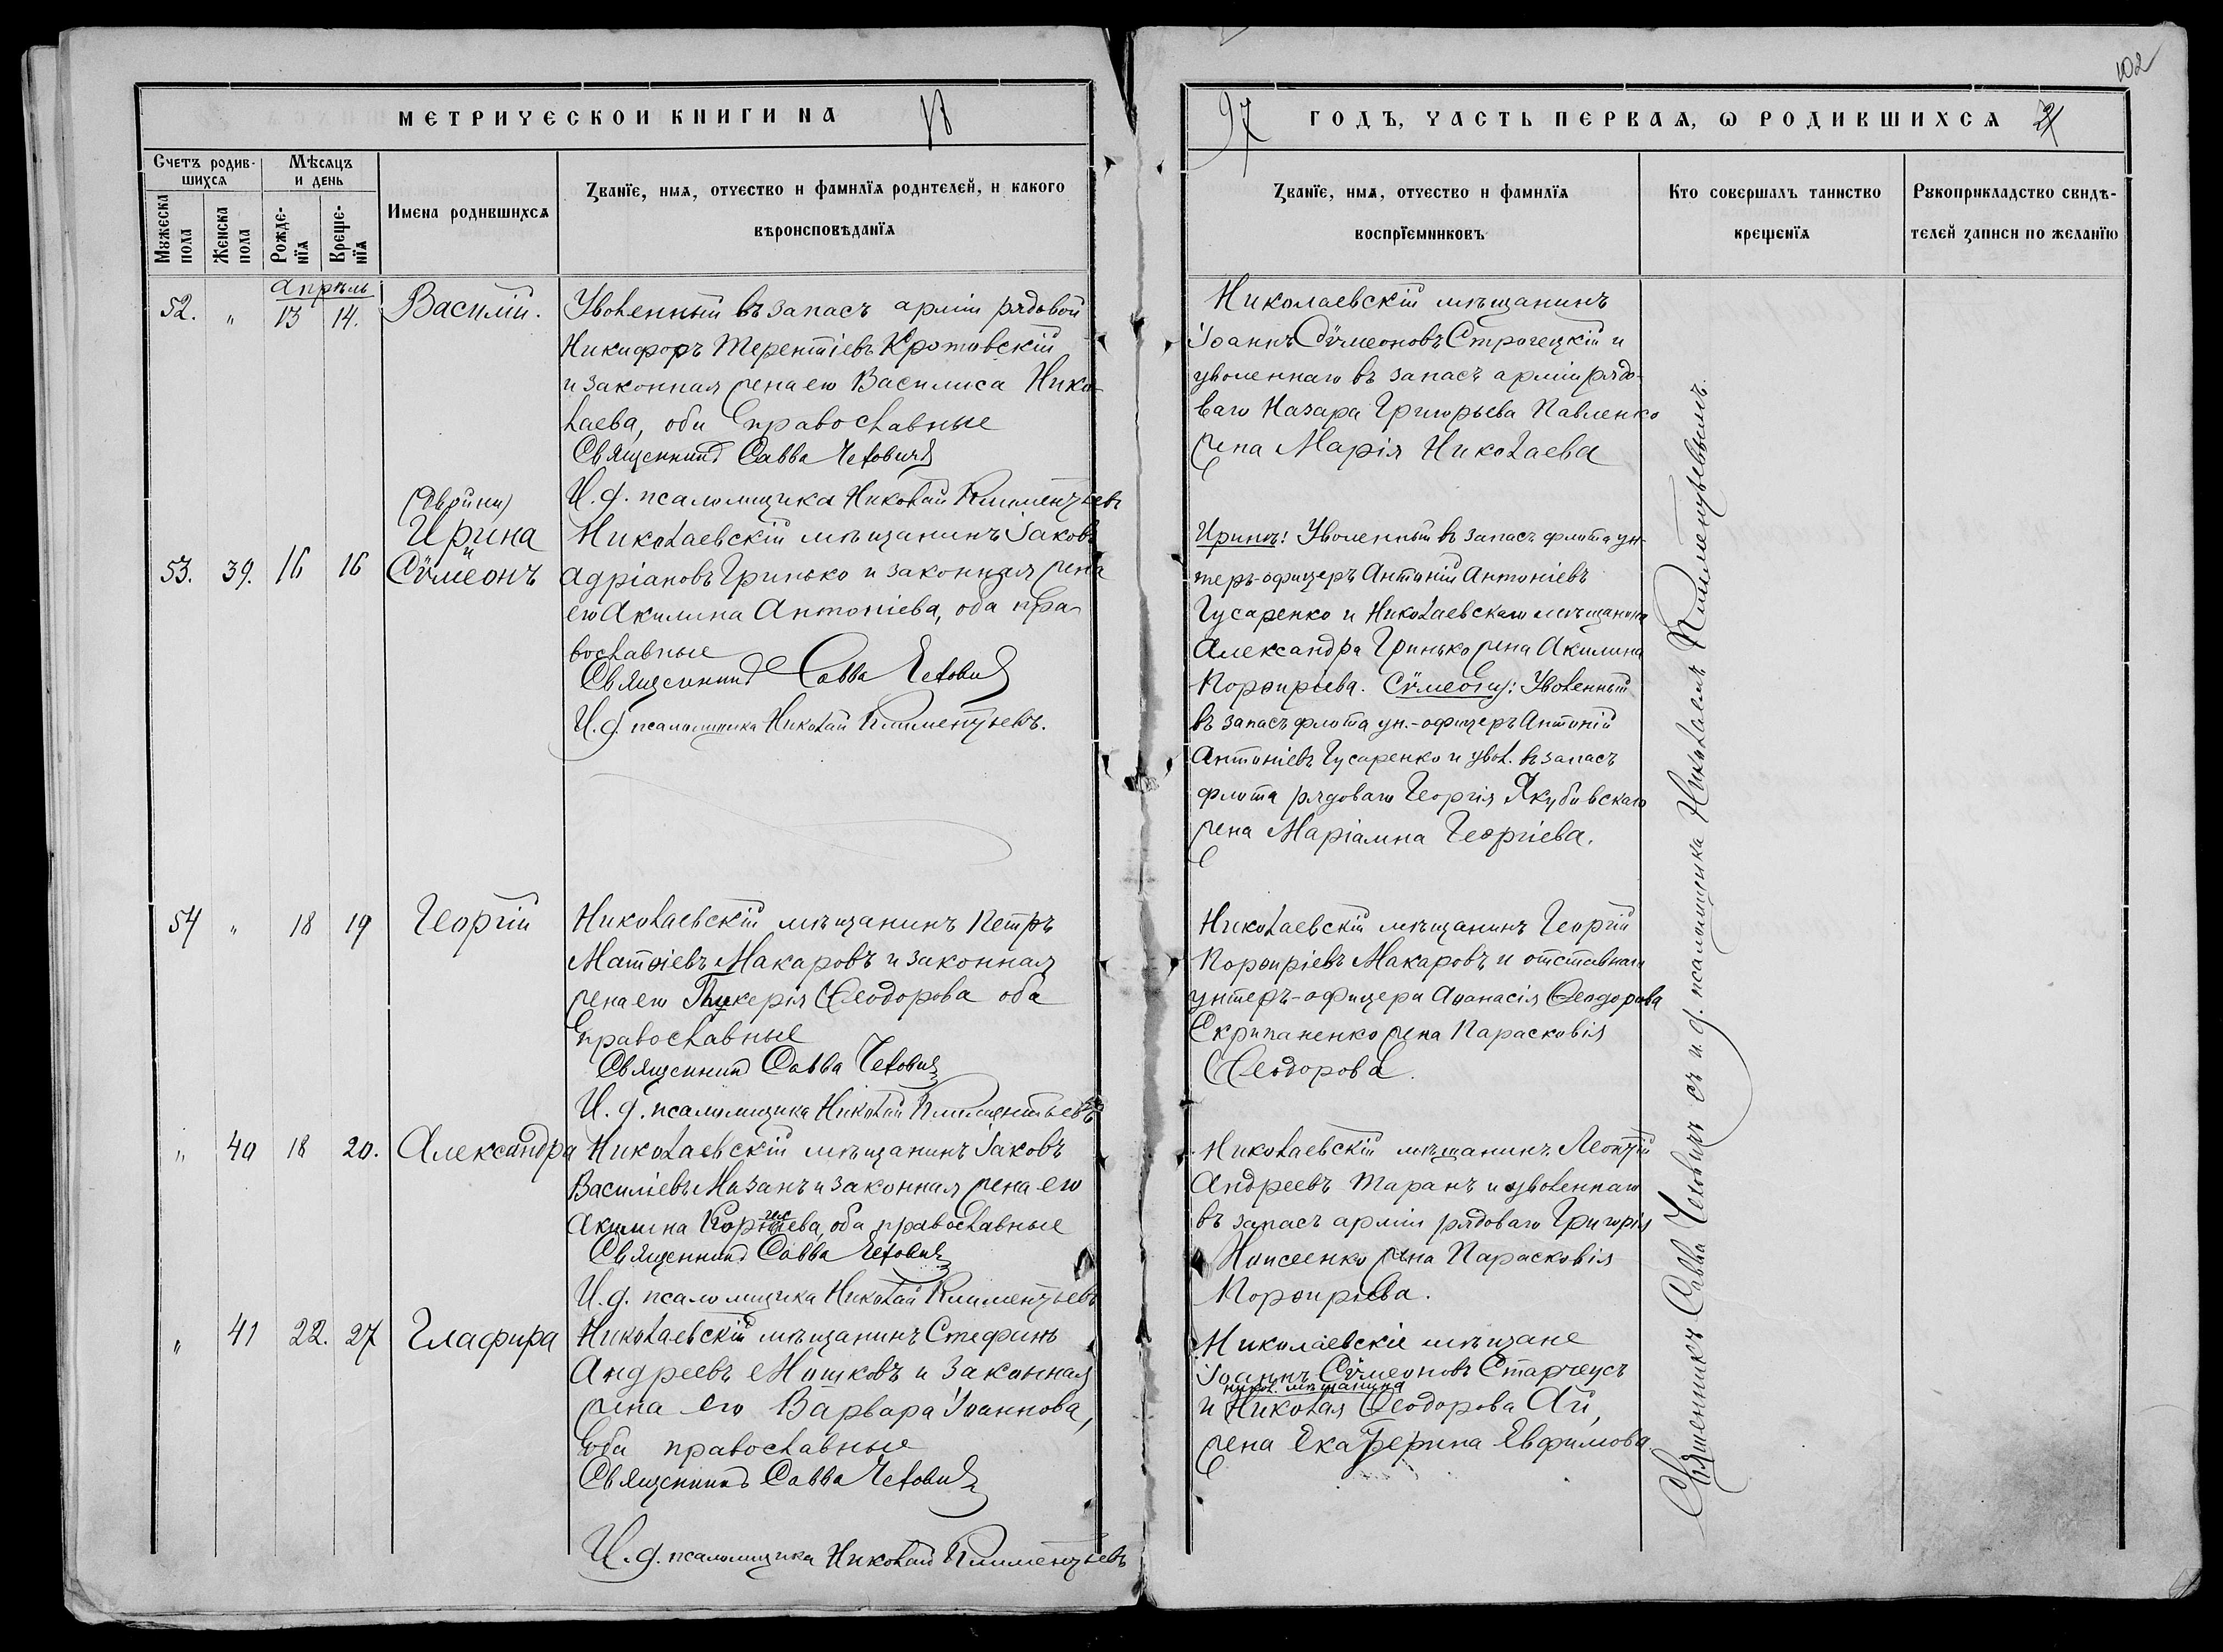 102
МЕТРИЧЕСКОИ КНИГИ НА 18
97 ГОДЪ, ЧАСТЬ ПЕРВАѦ, Ѡ РОДИВШИХСѦ
Счетъ родив-
шихсѧ
Мѣсѧцъ
и день
Мꙋжеска
пола
Женска
пола
Рожде-
нїѧ
Креще-
нїѧ
Имена родившихсѧ
Званїе, имѧ, отчество и фамилїѧ родителей, и какого
вѣроисповѣданїѧ
Званїе, имѧ, отчество и фамилїѧ
воспрїемниковъ
Кто совершалъ таинство
крещенїѧ
Рꙋкоприкладство свидѣ-
телей записи по желанїю
Апрѣль
52. " 13 14. Василій.
Уволенный въ запасъ арміи рядовой
Никифоръ Терентіевъ Кротовскій
и законная жена его Василиса Нико-
лаева, оба православные
Священникъ Савва Чехович
И. д. псаломщика Николай Климентьевъ
Николаевскій мѣщанинъ
Іоаннъ Сѵмеоновъ Строгецкій и
уволеннаго въ запасъ арміи рядо-
ваго Назара Григорьева Павленко
жена Марія Николаева
(двойни)
Ирина
и
53. 39. 16 16 Сѵмеонъ
Николаевскій мѣщанинъ Іаковъ
Адріановъ Гринько и законная жена
его Акилина Антоніева, оба пра-
вославные
Священникъ Савва Чехович
И. д. псаломщика Николай Климентьевъ.
Ирины: Уволенный въ запасъ флота ун-
теръ-офицеръ Антоній Антоніевъ
Гусаренко и Николаевскаго мѣщанина
Александра Гринько жена Акилина
Порфиріева. Сѵмеона: Уволенный
въ запасъ флота ун.-офицеръ Антоній
Антоніевъ Гусаренко и увол. въ запасъ
флота рядоваго Георгія Якубовскаго
жена Маріамна Георгіева.
54 " 18 19 Георгій
Николаевскій мѣщанинъ Петръ
Матѳіевъ Макаровъ и законная
жена его Гликерія Ѳеодорова оба
православные
Священникъ Савва Чехович
И. д. псаломщика Николай Климентьевъ
Николаевскій мѣщанинъ Георгій
Порфиріевъ Макаровъ и отставнаго
унтеръ-офицера Аѳанасія Ѳеодорова
Скрипаненко жена Парасковія
Ѳеодорова.
" 40 18 20. Александра
Николаевскій мѣщанинъ Іаковъ
Василіевъ Мазанъ и законная жена его
Акилина оба православные
Священникъ Савва Чехович
И. д. псаломщика Николай Климентьевъ
Николаевскій мѣщанинъ Леонтій
Андреевъ Таранъ и уволеннаго
въ запасъ арміи рядоваго Григорія
Моисеенко жена Парасковія
Порфиріева.
" 41 22. 27 Глафира
Николаевскій мѣщанинъ Стефанъ
Андреевъ Мошковъ и законная
жена его Варвара Іоаннова,
оба православные
Священникъ Савва Чехович
И. д. псаломщика Николай Климентьевъ
Николаевскіе мѣщане
Іоаннъ Сѵмеоновъ Старчеусъ
никол. мѣщанина
и Николая Ѳеодорова Ай,
жена Екатерина Евфимова
Священникъ Савва Чеховичъ съ и. д. псаломщика Николаемъ Климентьевымъ.